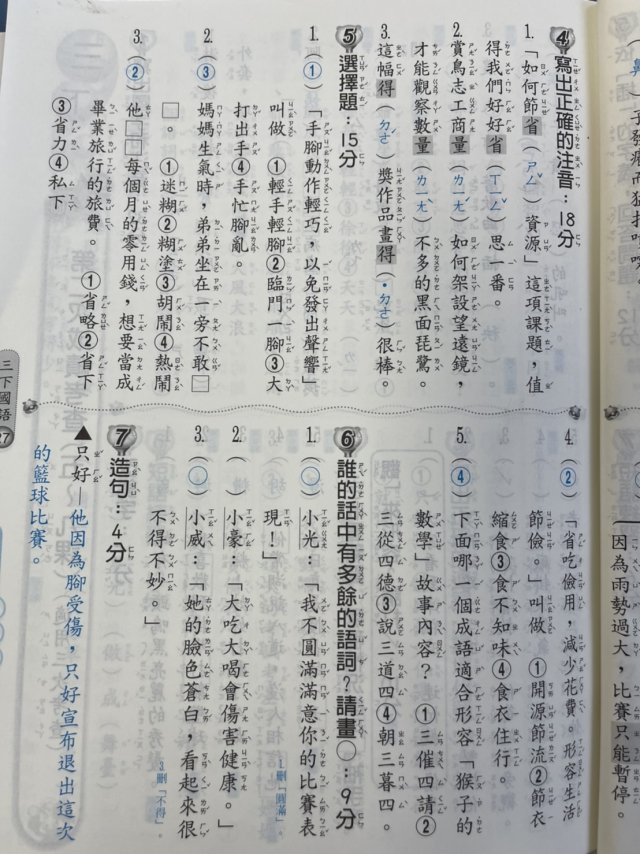 4 寫出正確的注音：18分
1. 「如何節省（ㄕㄥˇ）資源」這項課題，值
得我們好好省（ㄒㄧㄥˇ）思一番。
2. 賞鳥志工商量（ㄌㄧㄤˊ）如何架設望遠鏡，
才能觀察數量（ㄌㄧㄤˋ）不多的黑面琵鷺。
3. 這幅得（ㄉㄜˊ）獎作品畫得（˙ㄉㄜ）很棒。
5 選擇題：15分
1. （①）「手腳動作輕巧，以免發出聲響」
叫做 ①輕手輕腳②臨門一腳③大
打出手④手忙腳亂。
2. （③）媽媽生氣時，弟弟坐在一旁不敢□
□。 ①迷糊②糊塗③胡鬧④熱鬧
3. （②）他□□每個月的零用錢，想要當成
畢業旅行的旅費。 ①省略②省下
③省力④私下
4. （②）「省吃儉用，減少花費。形容生活
節儉。」叫做 ①開源節流②節衣
縮食③食不知味④食衣住行。
5. （④）下面哪一個成語適合形容「猴子的
數學」故事內容？ ①三催四請②
三從四德③說三道四④朝三暮四。
6 誰的話中有多餘的語詞？請畫○：9分
1. （○）小光：「我不圓滿滿意你的比賽表
現！」
1.刪「圓滿」。
2. （ ）小豪：「大吃大喝會傷害健康。」
3. （○）小威：「她的臉色蒼白，看起來很
不得不妙。」
3.刪「不得」。
7 造句：4分
▲只好—他因為腳受傷，只好宣布退出這次
的籃球比賽。
三下國語
27
因為雨勢過大，比賽只能暫停。